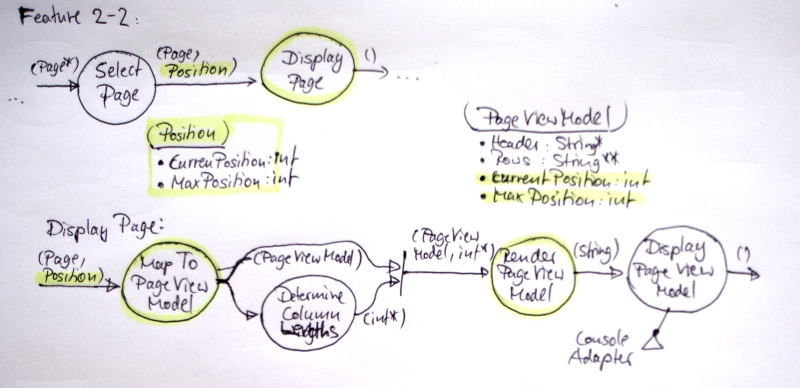 Feature 2-2:
(Page*)
Select
Page
(Page,
Position)
Display
Page
()
...
...
(Position)
• CurrenPosition: int
• MaxPosition: int
(PageViewModel)
• Header: String*
• Rows: String**
• CurrentPosition: int
• MaxPosition: int
Display Page:
(Page,
Position)
Map To
PageView
Model
(PageViewModel)
Determine
Column
Lengths
(int*)
(PageView
Model, int*)
Render
PageView
Model
(String)
Display
PageView
Model
()
Console
Adapter